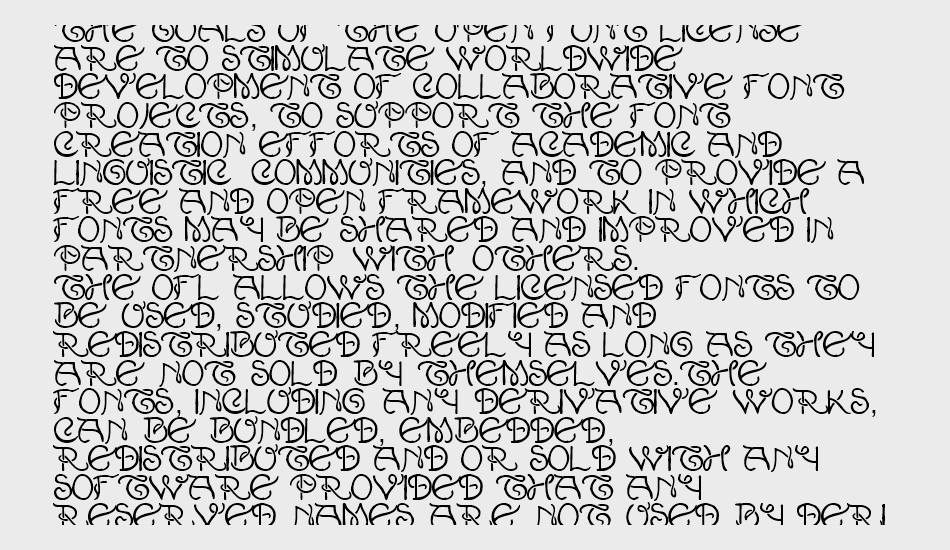 THE GOALS OF THE OPEN FONT LICENSE
ARE TO STIMULATE WORLDWIDE
DEVELOPMENT OF COLLABORATIVE FONT
PROJECTS, TO SUPPORT THE FONT
CREATION EFFORTS OF ACADEMIC AND
LINGUISTIC COMMUNITIES, AND TO PROVIDE A
FREE AND OPEN FRAMEWORK IN WHICH
FONTS MAY BE SHARED AND IMPROVED IN
PARTNERSHIP WITH OTHERS.
THE OFL ALLOWS THE LICENSED FONTS TO
BE USED, STUDIED, MODIFIED AND
REDISTRIBUTED FREELY AS LONG AS THEY
ARE NOT SOLD BY THEMSELVES.THE
FONTS, INCLUDING ANY DERIVATIVE WORKS,
CAN BE BUNDLED, EMBEDDED,
REDISTRIBUTED AND OR SOLD WITH ANY
SOFTWARE PROVIDED THAT ANY
RESERVED NAMES ARE NOT USED BY DERI